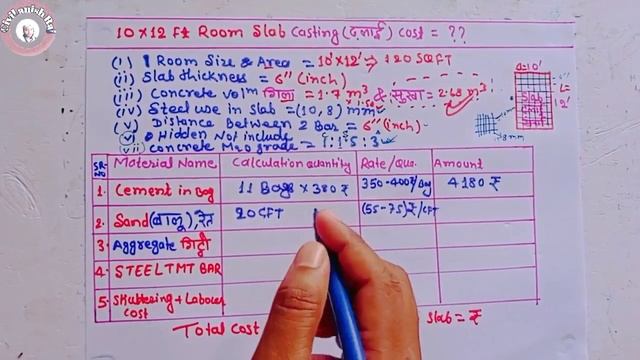 Civil anish Raj
10×12 Ft Room Slab Casting (ढलाई) Cost = ??
(i) 1 Room Size & Area = 10'×12' ⇒ 120 SQFT
(ii) Slab thickness = 6" (inch)
(iii) Concrete volm गिला = 1.7 m³ & सुखा = 2.68 m³
(iv) Steel use in slab = (10, 8) mm
(v) Distance between 2 Bar = 6" (inch)
(vi) Hidden Not include
(vii) concrete M20 grade = 1:1.5:3
10'
12'
Slab
8mm
SR. NO
Material Name
Calculation quantity
Rate/Qua.
Amount
1. Cement in Bag
11 Bags × 380₹
350-400₹/Bag
4180 ₹
2. Sand (बालू), रेत
20 CFT
(55-75)₹/CFT
3. Aggregate गिट्टी
4 STEEL TMT BAR
5. Shuttering + Labour cost
Total Cost
slab = ₹